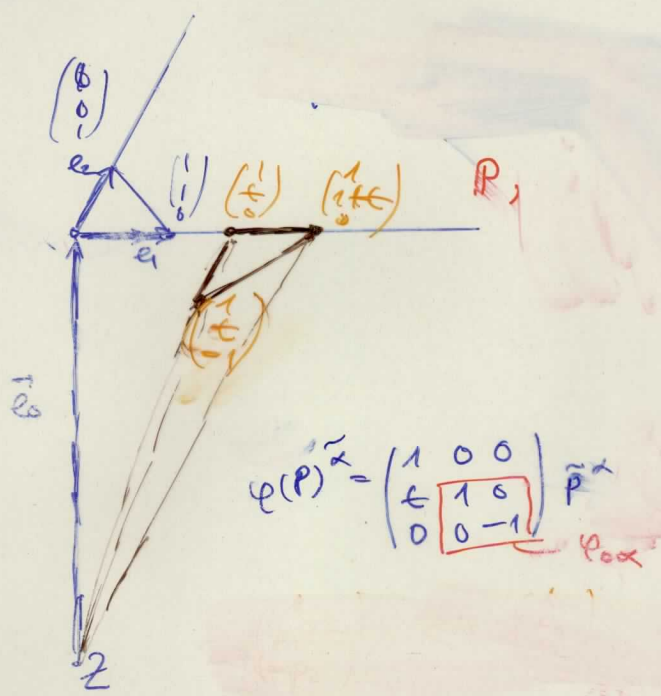 (1 0 1)
e₂
(1 1 0)
(1 t 0)
(1 1+t 0)
P₁
e₁
(1 t -1)
e⃗₀
φ(P)^α̃ = (1 0 0; t 1 0; 0 0 -1) P̃^α
φ₀α
Z